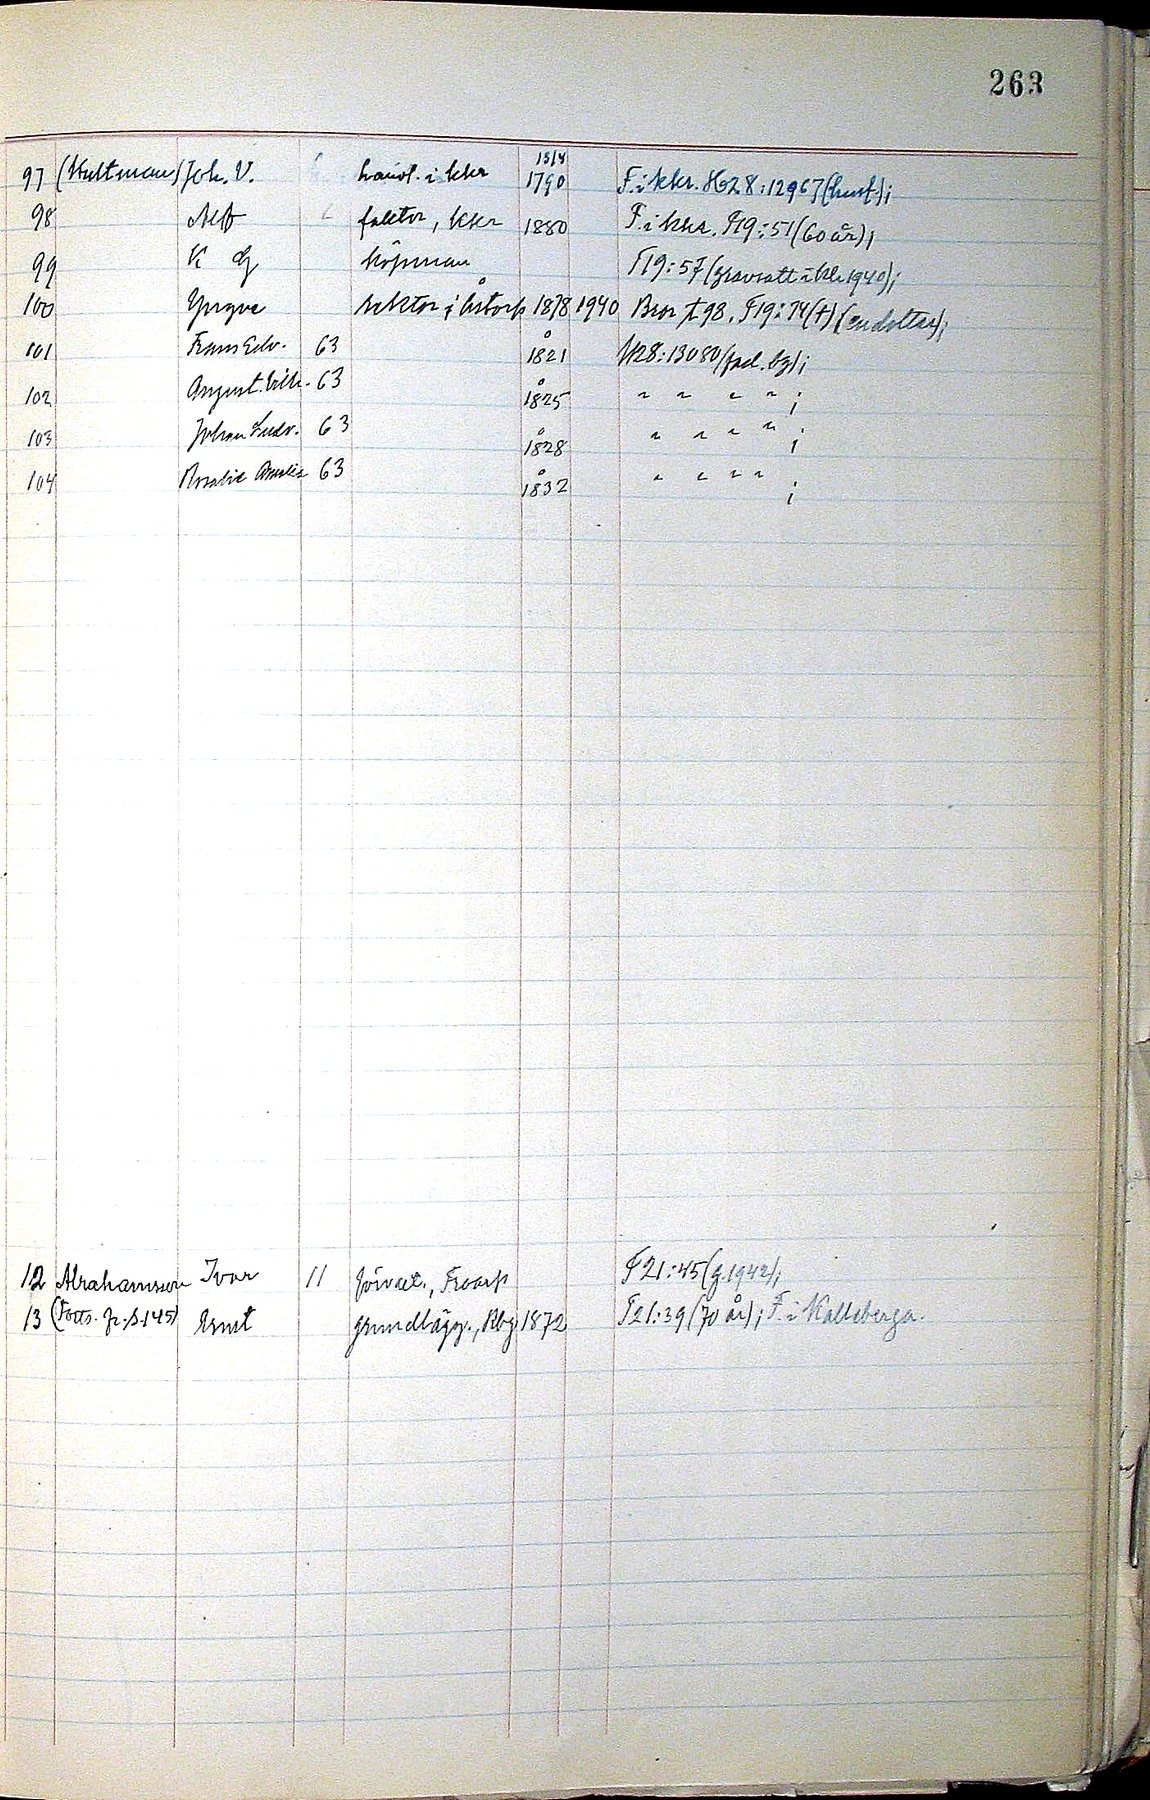 263
97 (Hultman) Joh. V. handl. i kkr 15/4 1790 F. i kkr. Hz 8:12967 (hust);
98 Alfr faktor, kkr 1880 F. i kkr. F19:51 (60 år);
99 K G köpman F19:57 (gravsatt i kkr 1940);
100 Yngve rektor i Åstorp 1878 1940 Bror t. 98. F19:74 (†) (en dotter);
101 Frans Edv. 63 å 1821 Hz8:13080 (fad. bg);
102 August Vilh. 63 å 1825 " " " " ;
103 Johan Ludv. 63 å 1828 " " " " ;
104 Rosalie Amalia 63 å 1832 " " " " ;
12 Abrahamsson Ivar 11 förvalt., F21:45 (g. 1942);
13 (Forts. fr. s. 145) Ernst grundlägg., Hbg 1872 F21:39 (70 år); F. i Kattsberga.